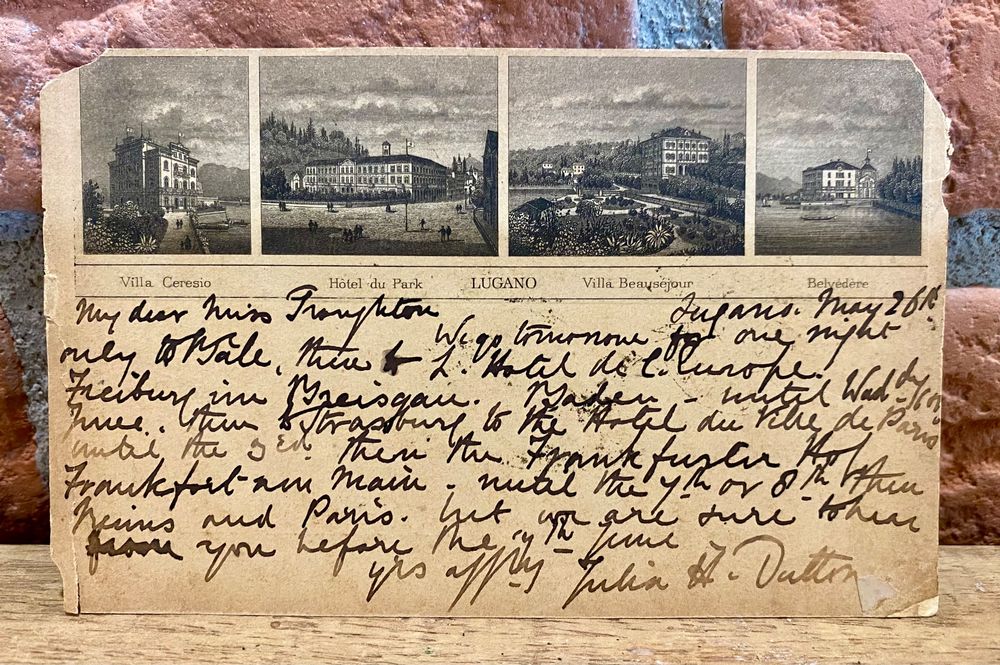 Villa Ceresio Hôtel du Park LUGANO Villa Beauséjour Belvédère
My dear Miss Troughton Lugano. May 26th
We go tomorrow for one night
only to Bâle, then to L. Hotel de l'Europe.
Freiburg im Breisgau. Baden - until Wed-dy
June. then to Strasburg to the Hotel du Ville de Paris
until the 3rd. then the Frankfurter Hof
Frankfort-am Main - until the 7th or 8th then
Reims and Paris. but we are sure to hear
from you before the 7th June
yrs affly Julia H. Dutton